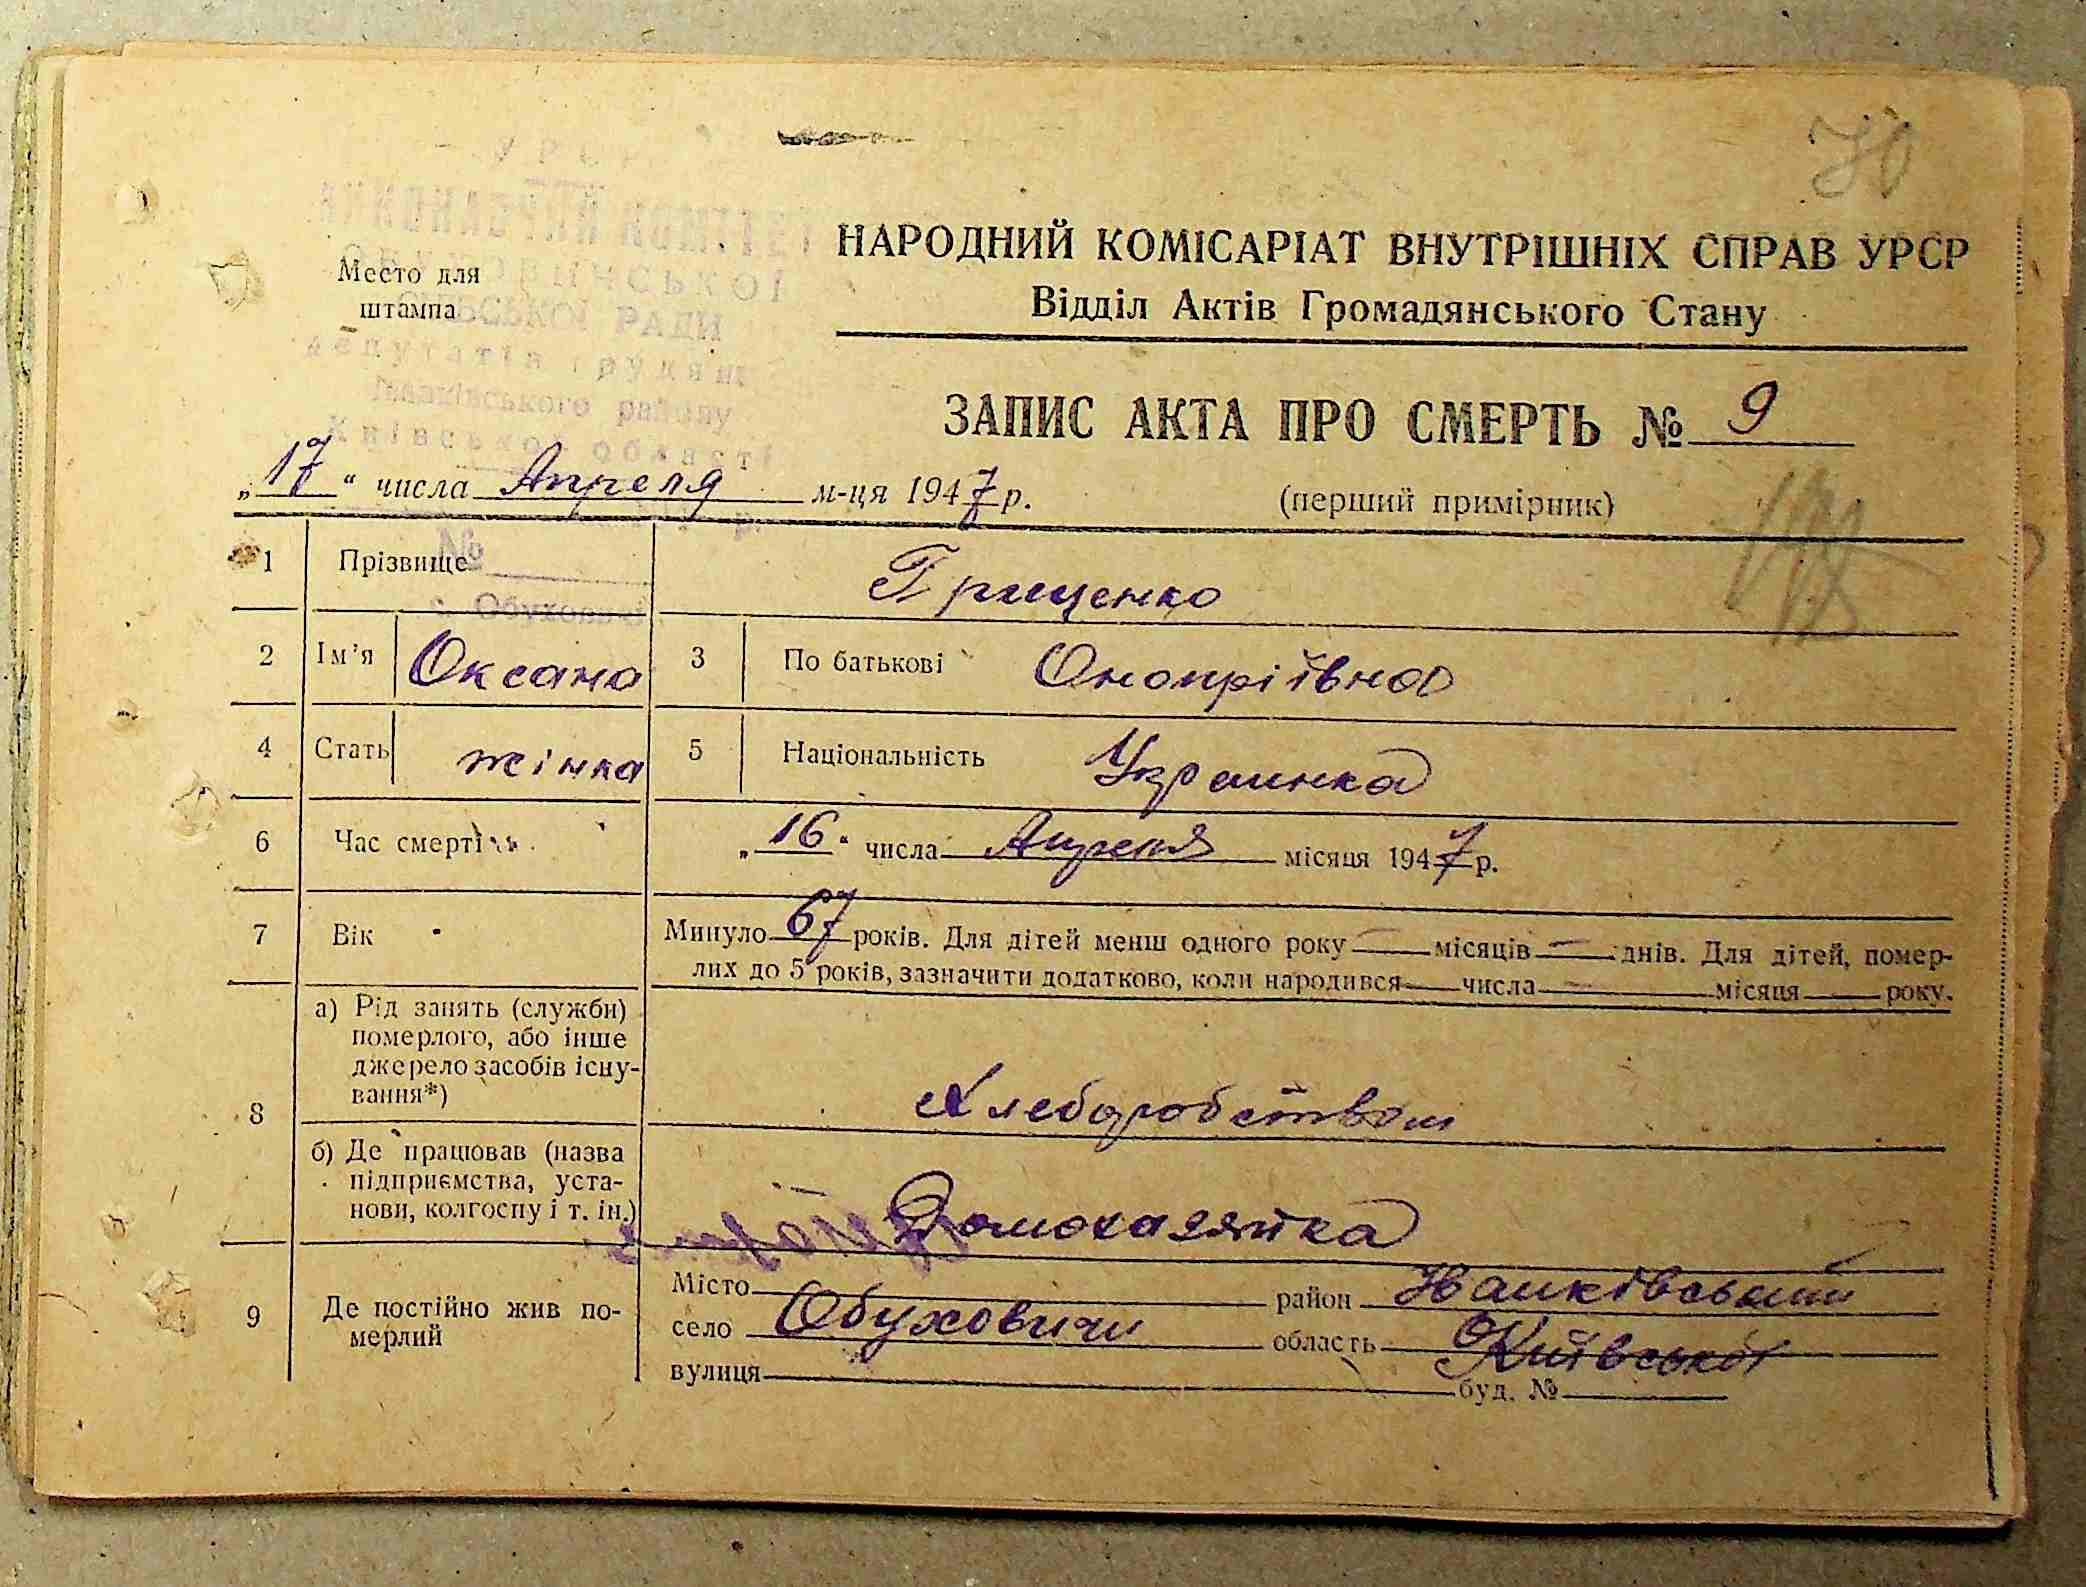 70
УРСР
ВИКОНАВЧИЙ КОМІТЕТ
ОБУХОВИЧСЬКОЇ
СІЛЬСЬКОЇ РАДИ
депутатів трудящ
Іванківського району
Київської області
№
с. Обуховичі
Место для
штампа
НАРОДНИЙ КОМІСАРІАТ ВНУТРІШНІХ СПРАВ УРСР
Відділ Актів Громадянського Стану
ЗАПИС АКТА ПРО СМЕРТЬ № 9
„17“ числа Апреля м-ця 1947 р. (перший примірник)
1 Прізвище Грищенко
2 Ім'я Оксана 3 По батькові Онопріївна
4 Стать жінка 5 Національність Украинка
6 Час смерті „16“ числа Апреля місяця 1947 р.
7 Вік Минуло 67 років. Для дітей менш одного року — місяців — днів. Для дітей, помер-
лих до 5 років, зазначити додатково, коли народився — числа — місяця — року.
8 а) Рід занять (служби)
померлого, або інше
джерело засобів існу-
вання*)
Хлеборобством
б) Де працював (назва
підприємства, уста-
нови, колгоспу і т. ін.)
Домохазяйка
9 Де постійно жив по-
мерлий
Місто район Іванківський
село Обуховичи область Київської
вулиця буд. №